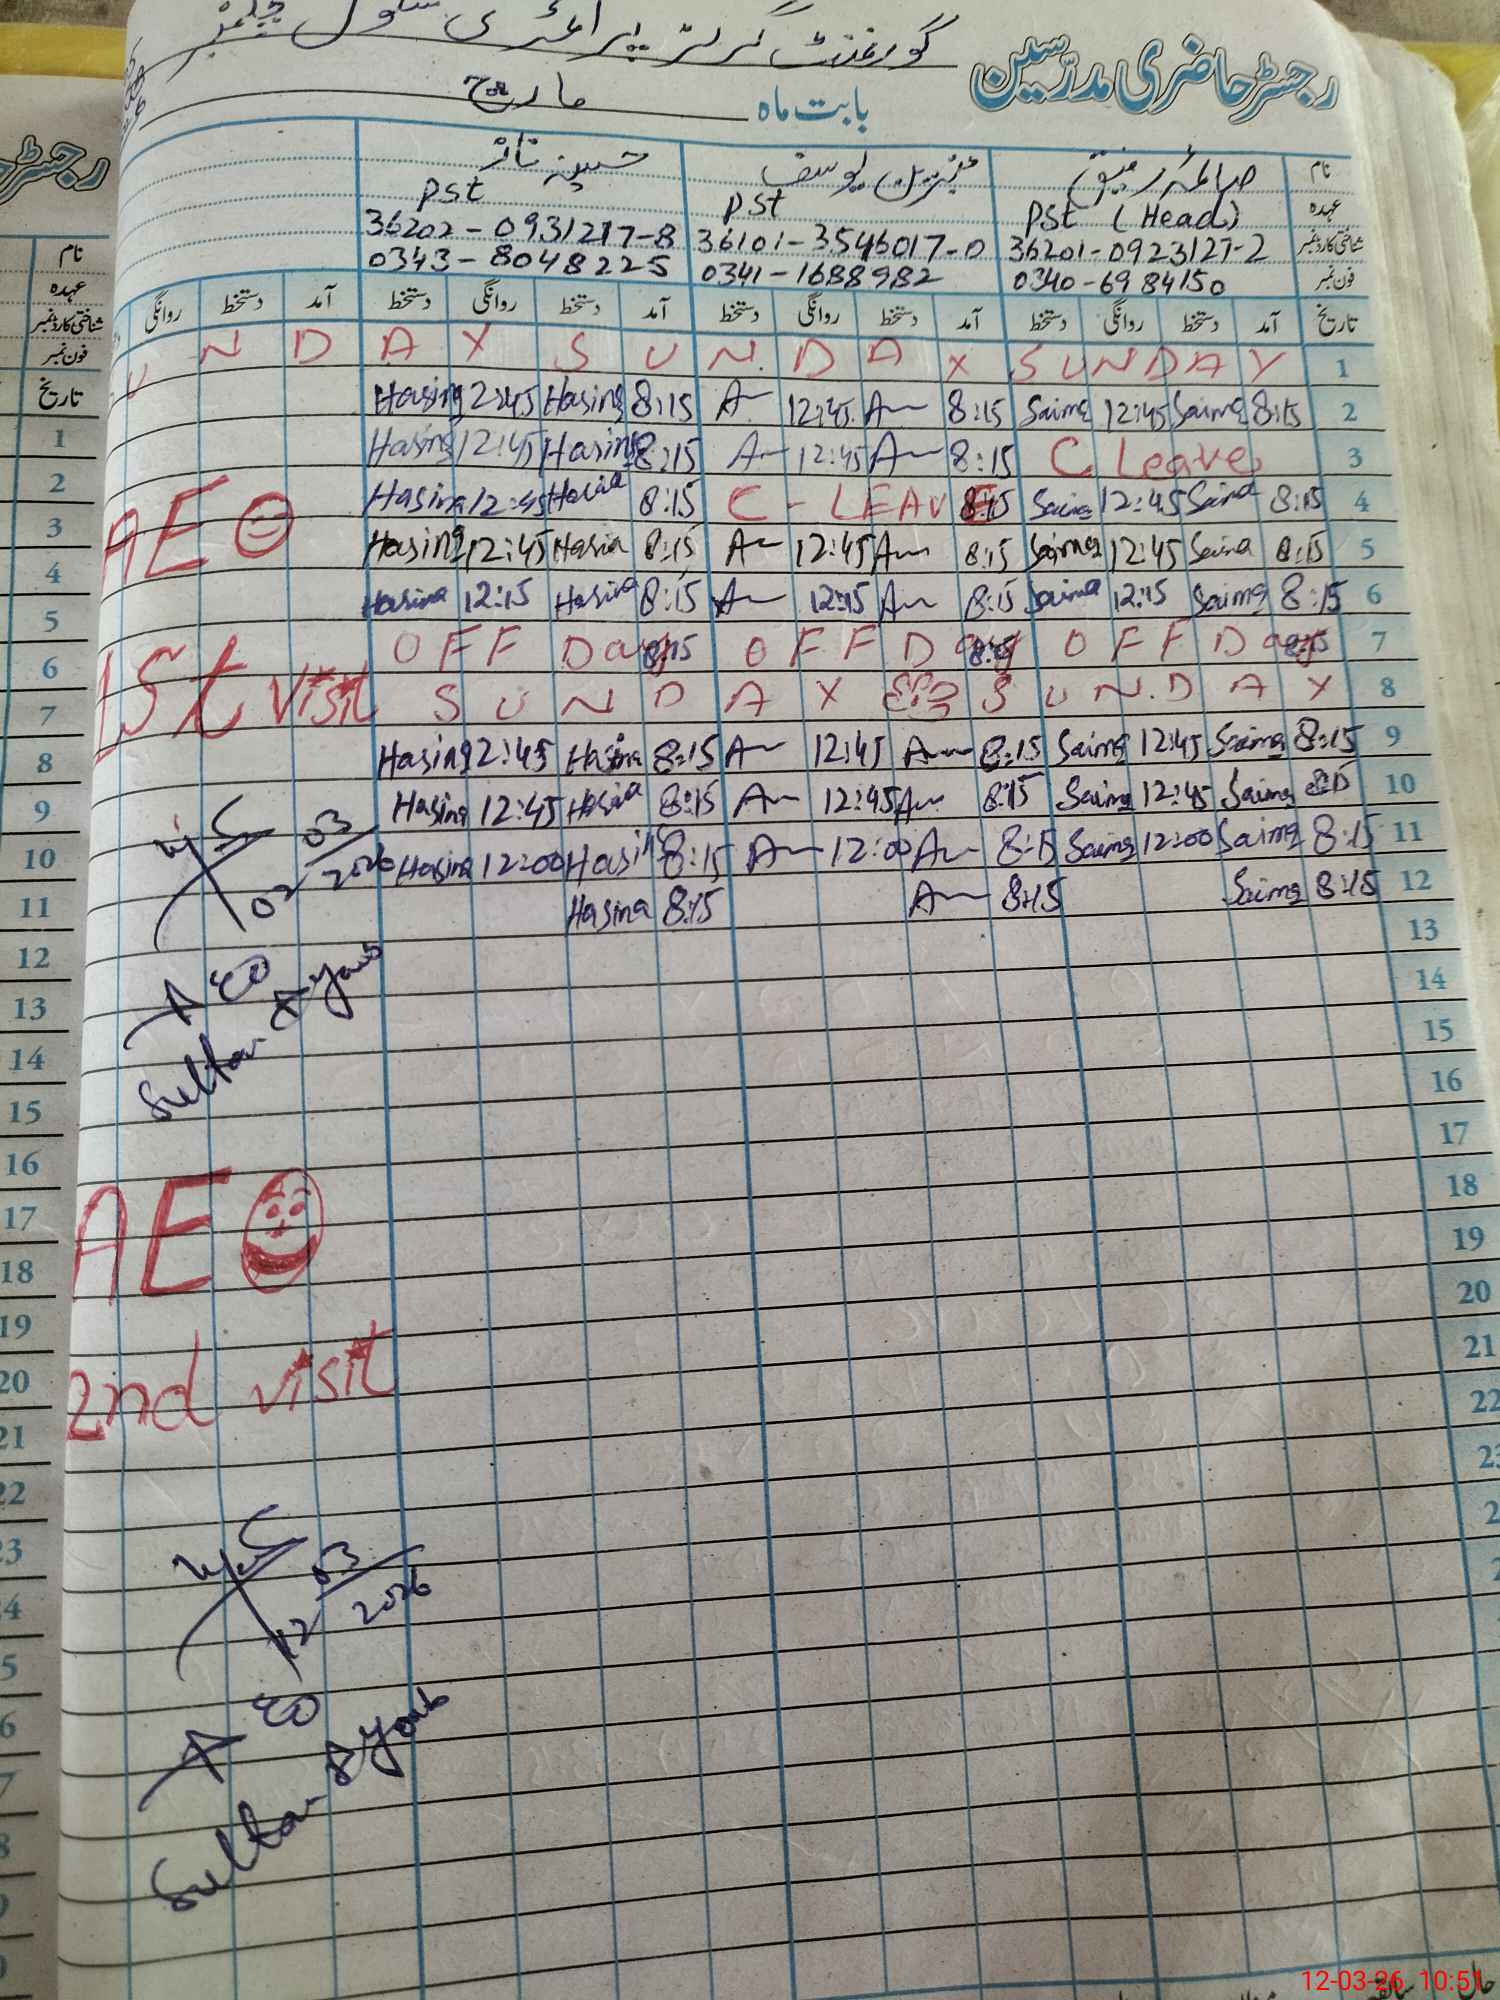 گورنمنٹ گرلز پرائمری سکول
رجسٹر حاضری مدرسین
بابت ماہ مارچ
نام صائمہ رفیق عنبرین یوسف حسینہ ناز
عہدہ PST (Head) PST PST
شناختی کارڈ نمبر 36201-0923127-2 36101-3546017-0 36202-0931217-8
فون نمبر 0340-6984150 0341-1688982 0343-8048225
تاریخ آمد دستخط روانگی دستخط آمد دستخط روانگی دستخط آمد دستخط روانگی دستخط آمد دستخط روانگی
U N D A Y S U N D A Y SUNDAY 1
Hasina 12:45 Hasina 8:15 A 12:45 A 8:15 Saima 12:45 Saima 8:15 2
Hasina 12:45 Hasina 8:15 A 12:45 A 8:15 C Leave 3
Hasina 12:45 Hasina 8:15 C-LEAVE 8:15 Saima 12:45 Saima 8:15 4
Hasina 12:45 Hasina 8:15 A 12:45 A 8:15 Saima 12:45 Saima 8:15 5
Hasina 12:15 Hasina 8:15 A 12:15 A 8:15 Saima 12:15 Saima 8:15 6
OFF Day 8:15 OFF Day 8:15 OFF Day 8:15 7
S U N D A Y S U N D A Y 8
Hasina 12:45 Hasina 8:15 A 12:45 A 8:15 Saima 12:45 Saima 8:15 9
Hasina 12:45 Hasina 8:15 A 12:45 A 8:15 Saima 12:45 Saima 8:15 10
Hasina 12:00 Hasina 8:15 A 12:00 A 8:15 Saima 12:00 Saima 8:15 11
Hasina 8:15 A 8:15 Saima 8:15 12
13
14
15
16
17
18
19
20
21
22
AEO
1st visit
02 03 2026
AEO
Sultan Ayoub
AEO
2nd visit
12 03 2026
AEO
Sultan Ayoub
نام
عہدہ
شناختی کارڈ نمبر
فون نمبر
تاریخ
1
2
3
4
5
6
7
8
9
10
11
12
13
14
15
16
17
18
19
20
21
22
12-03-26 10:51